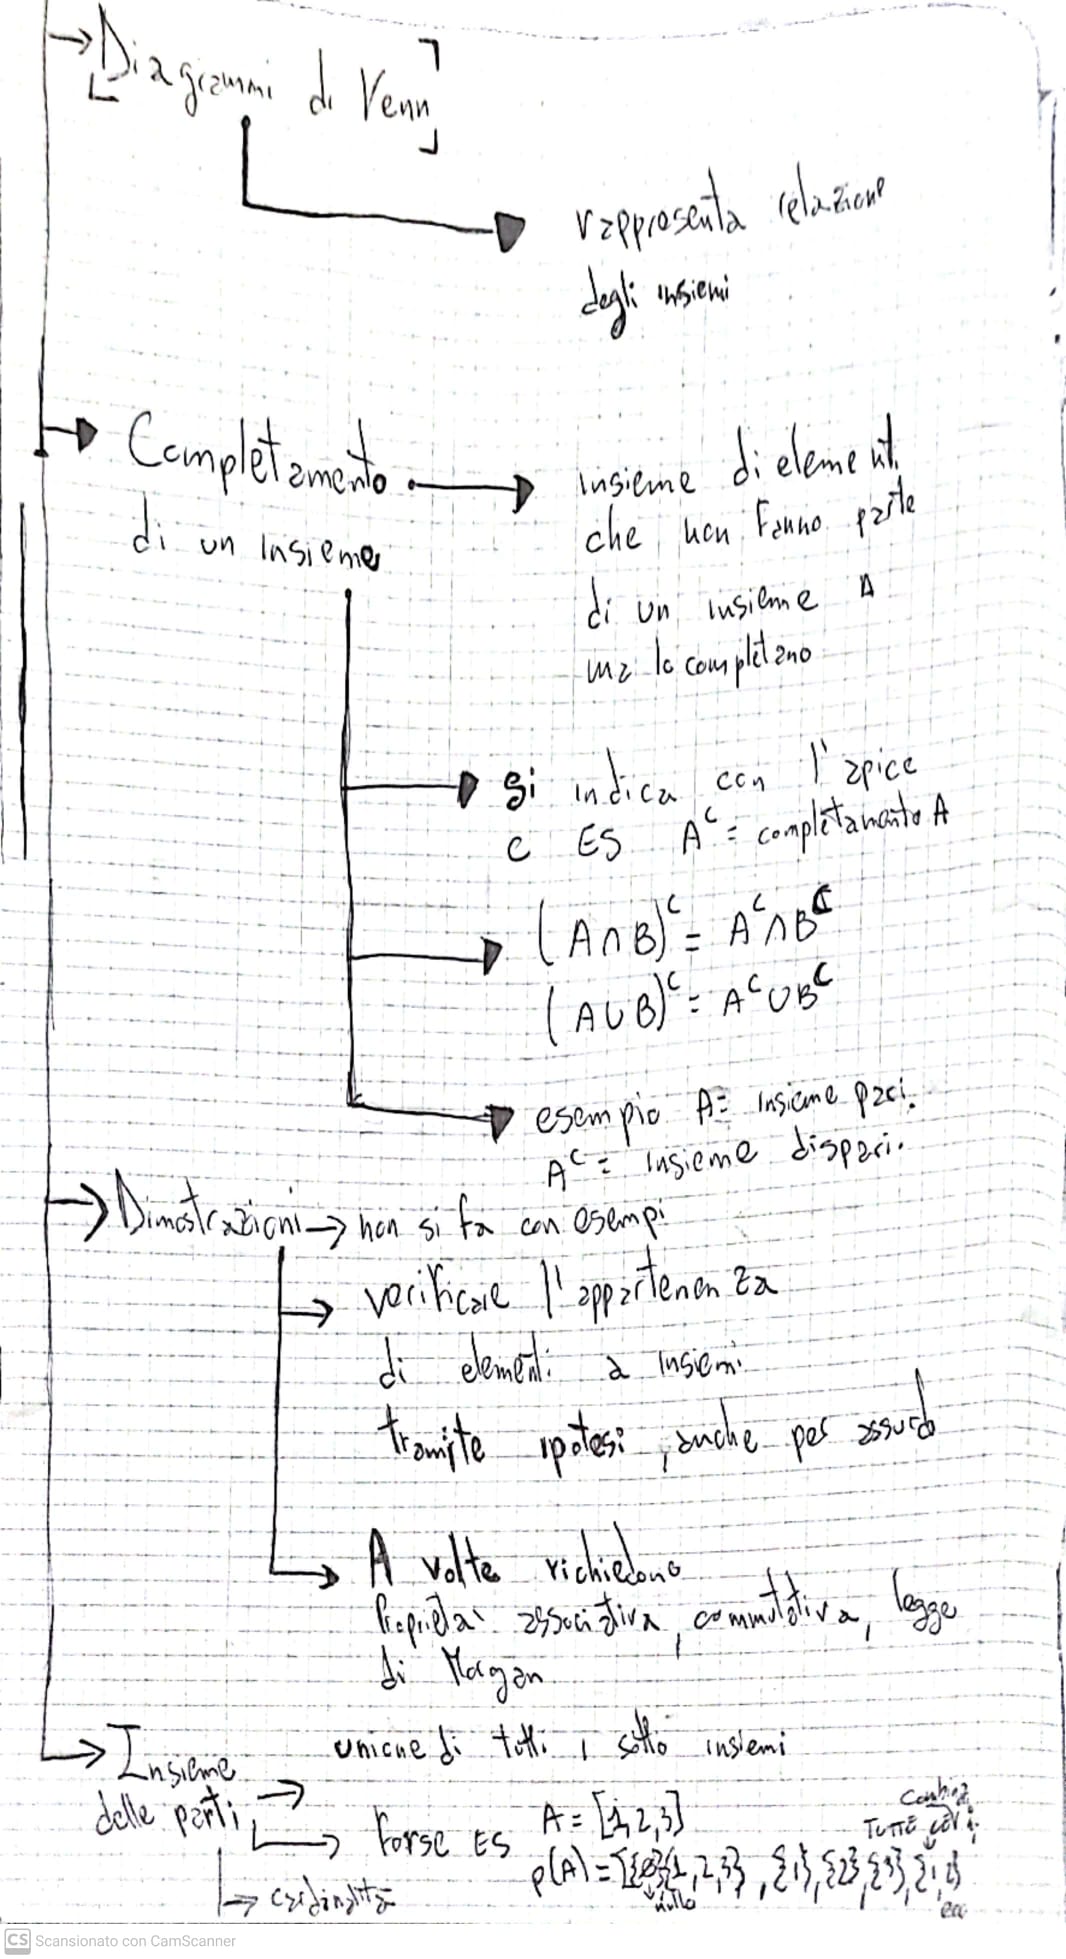 → [Diagrammi di Venn]
rappresenta relazione
degli insiemi
Completamento
di un insieme
insieme di elementi
che non fanno parte
di un insieme A
ma lo completano
Si indica con l'apice
c ES A^c = completamento A
(A∩B)^c = A^c∩B^c
(A∪B)^c = A^c∪B^c
esempio A= insieme pari.
A^c = insieme dispari.
→ Dimostrazioni → non si fa con esempi
→ verificare l'appartenenza
di elementi a insiemi
tramite ipotesi, anche per assurdo
→ A volte richiedono
Proprietà associativa, commutativa, legge
di Morgan
→ Insieme
delle parti
→ unione di tutti i sotto insiemi
→ forse ES A = [1,2,3]
TUTTE
p(A) = [{ø}{1,2,3}, {1},{2}{3},{1,2}
nullo
ecc
→ cardinalità
CS Scansionato con CamScanner